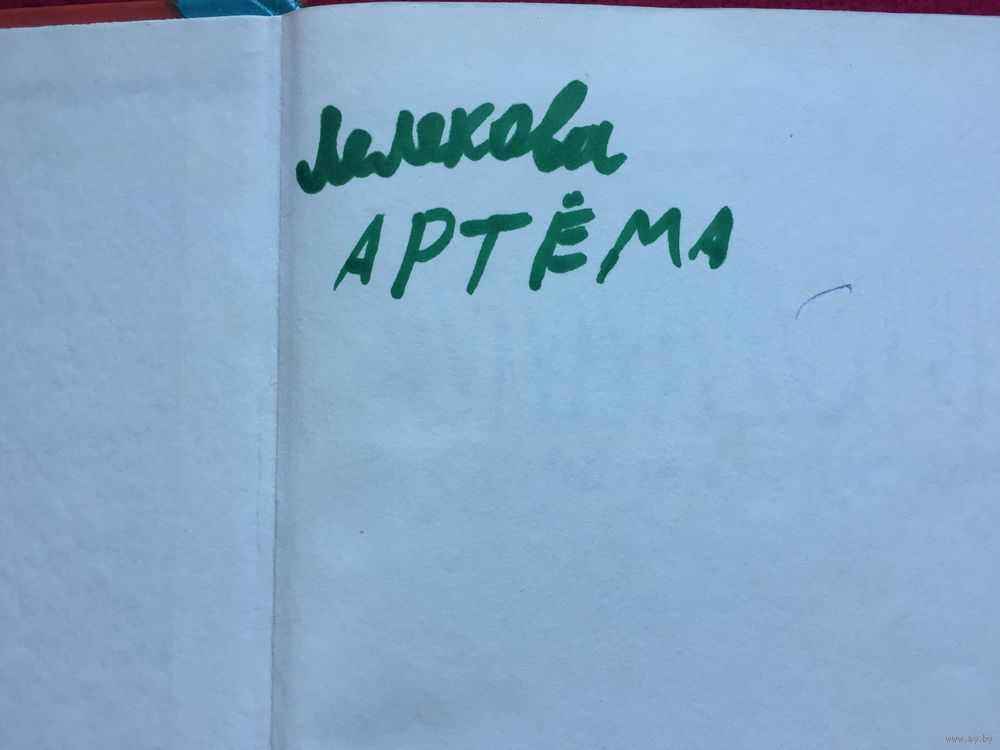 Лелекова
АРТЁМА
www.ay.by